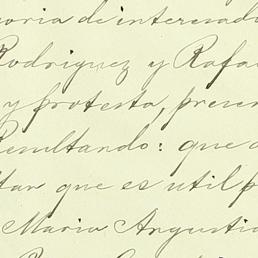 oria de interesado
Rodriguez y Rafa
y protesta, presen
Resultando: que a
tan que es util p
Maria Angustia